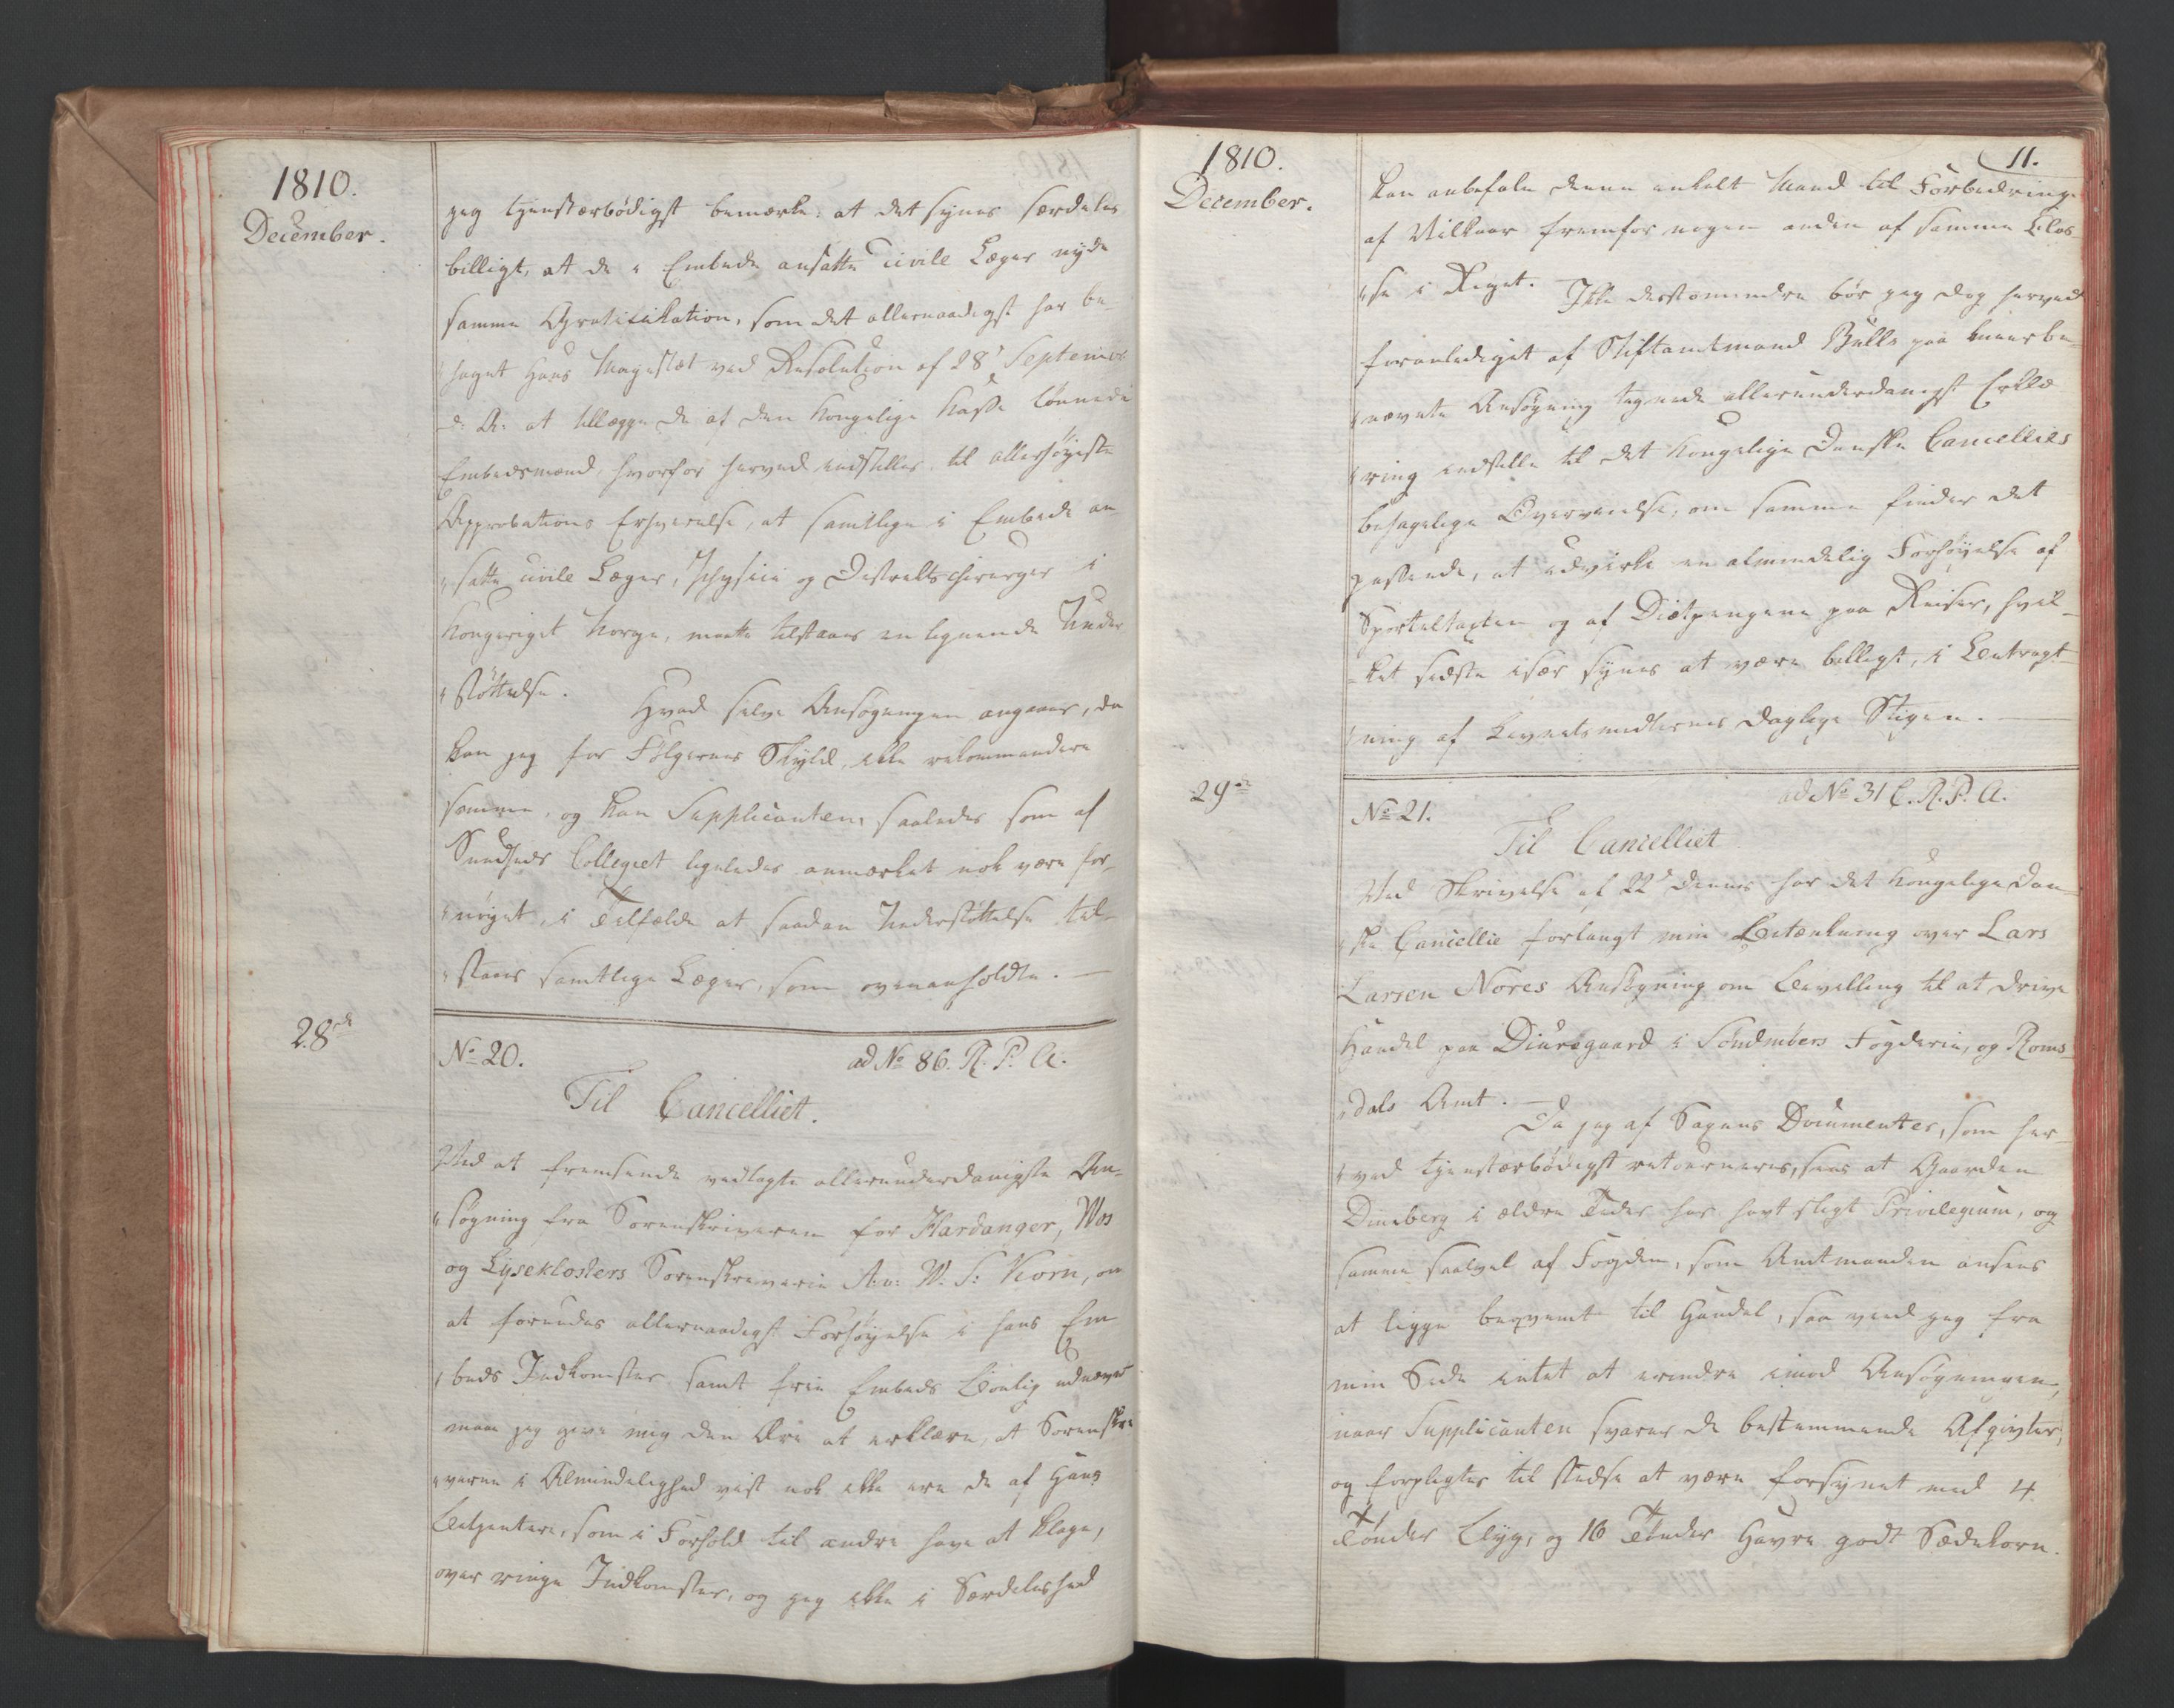 1810.
December.
jeg tjenstærbödigst bemærke: at det synes særdeles
billigt, at de i Embede ansatte civile Læger nyde
samme Gratification, som det allernaadigst har be-
"haget Hans Majestæt ved Resolution af 28' Septembr
d: A: at tillægge de af den Kongelige Kasse lönnede
Embedsmænd, hvorfor herved indstilles til allerhöjeste
Approbations Erhvervelse, at samtlige i Embede an-
"satte civile Læger, Physici og Distrikts chirurger i
Kongeriget Norge, maatte tilstaaes en lignende Under
"stöttelse. Hvad selve Ansögningen angaaer, da
kan jeg for Fölgernes Skyld, ikke rekommendere
samme, og kan Supplicanten, saaledes som af
Sundheds Collegiet ligeledes anmærket nok være for-
"nöyet, i Tilfælde at saadan Understöttelse til-
"staaes samtlige Læger, som ovenanholdte. —
28de
No 20. ad No 86. R. P. A.
Til Cancelliet.
Ved at fremsende vedlagte allerunderdanigste An-
"søgning fra Sorenskriveren for Hardanger, Wos
og Lyseklosters Sorenskriverie A: W. S: Korn, om
at forundes allernaadigst Forhöyelse i hans Em
"beds Indkomster samt frie Embeds Boelig
maa jeg give mig den Ære at erklære, at Sorenskri
"verne i Almindelighed vist nok ikke ere de af Hans
Betjentere, som i Forhold til andre have at klage,
over ringe Indkomster, og jeg ikke i Særdeleshed
1810.
December.
11.
kan anbefale denne enkelt Mand til Forbedringe
af Vilkaar fremfor nogen anden af samme Clas-
"se i Riget. Ikke destomindre bör jeg dog herved
foranlediget af Stiftamtmand Bulls paa meerbe-
"nævnte Ansögning tegnede allerunderdanigst Erklæ
"ring indstille til det Kongelige Danske Cancellies
behagelige Overveielse, om samme finder det
passende, at udvirke en almindelig Forhöyelse af
Sportultaxten og af Diætpengene paa Reiser, hvil-
"ket sidste især synes at være billigt, i Betragt-
"ning af Levnetsmidlernes daglige Stigen. —
29de
No 21. ad No 31 C. R. P. A.
Til Cancelliet
Ved Skrivelse af 22' dennes har det Kongelige Dan-
"ske Cancellie forlangt min Betænkning over Lars
Larsen Nores Ansögning om Bevilling til at drive
Handel paa Diuregaard i Söndmörs Fogderie, og Roms-
"dals Amt. —
Da jeg af Sagens Documenter, som her-
"ved tjenstærbödigst retourneres, sees at Gaarden
Diueberg i ældre Tider har havt sligt Privilegium, og
samme saavel af Fogden, som Amtmanden ansees
at ligge beqvemt til Handel, saa veed jeg fra
min Side intet at erindre imod Ansögningen,
naar Supplicanten svarer de bestemmende Afgivter,
og forpligtes til stedse at være forsynet med 4
Tönder Byg, og 16 Tönder Havre godt Sædekorn.